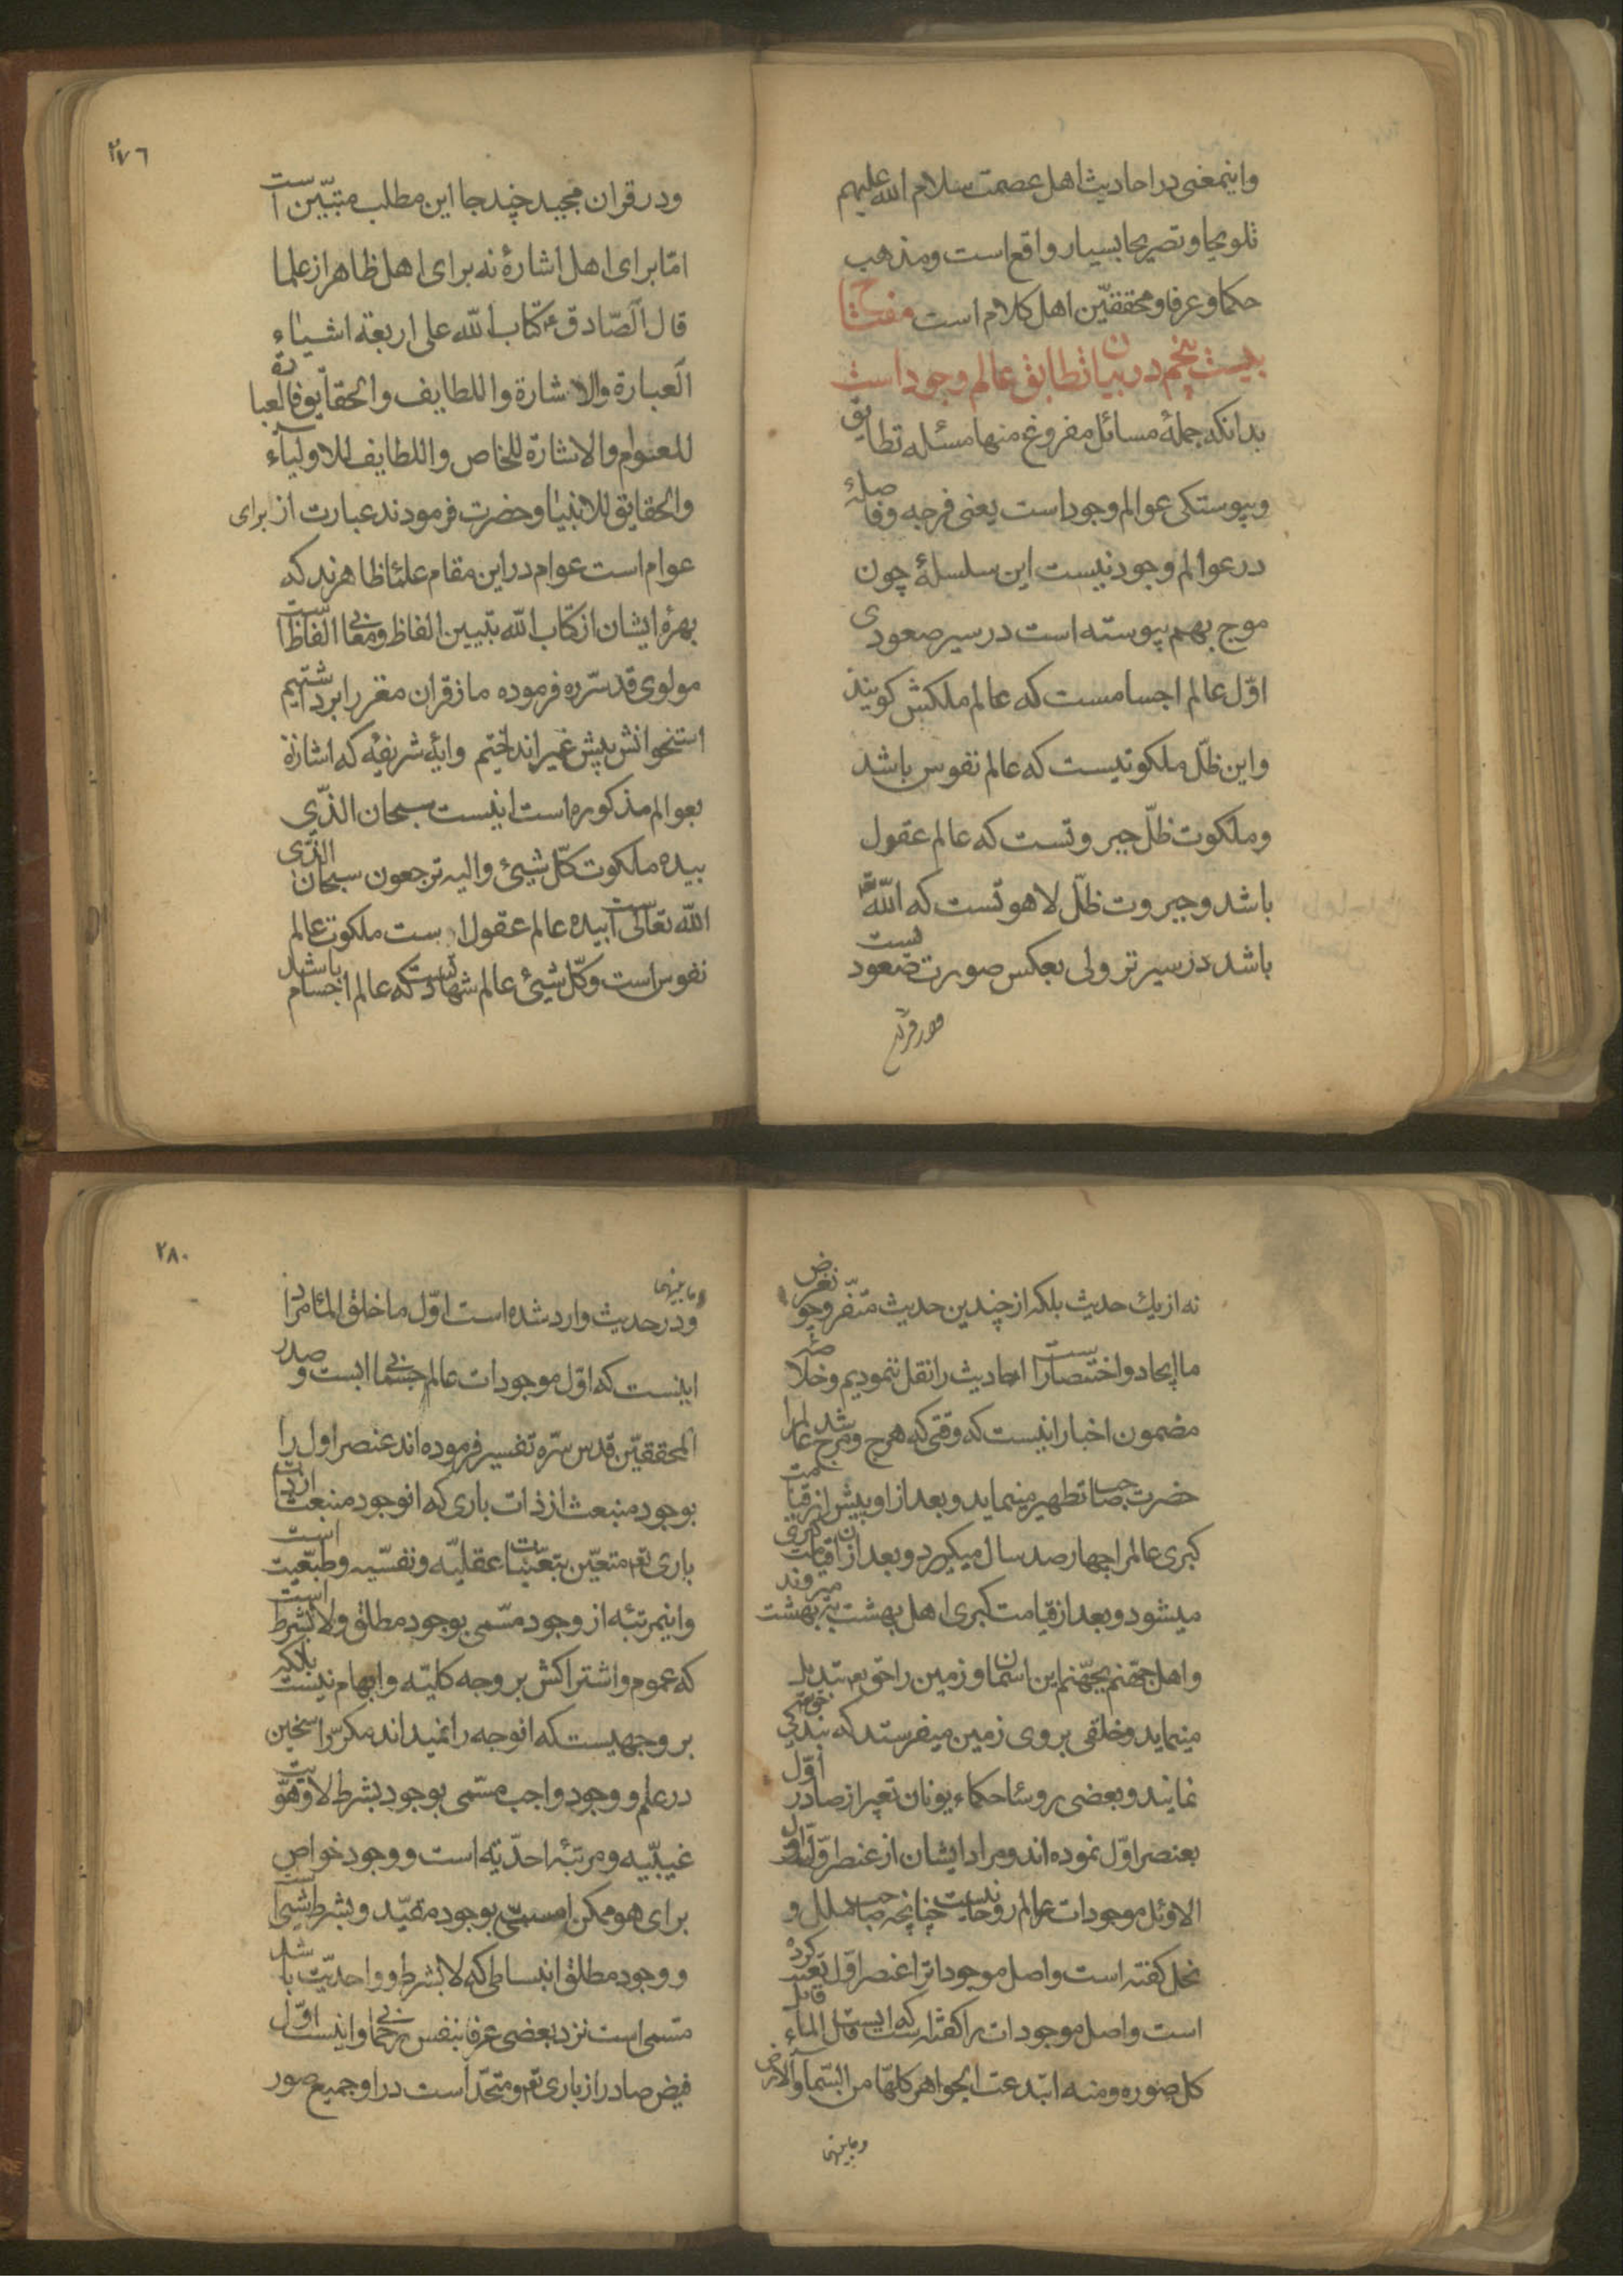 واینمعنی در احادیث اهل عصمت سلام الله علیهم
تلویحا و تصریحا بسیار واقع است و مذهب
حکما و عرفا و محققین اهل کلام است مفتاح
بیست پنجم در بیان تطابق عالم وجود است
بدانکه جملهٔ مسائل مفروغ منها مسئله تطابق
و پیوستکی عوالم وجود است یعنی فرجه و فاصلهٔ
در عوالم وجود نیست این سلسلهٔ چون
موج بهم پیوسته است در سیر صعودی
اوّل عالم اجسامست که عالم ملکش کویند
واین ظلّ ملکوتیست که عالم نفوس باشد
وملکوت ظلّ جبروتست که عالم عقول
باشد وجبروت ظلّ لاهوتست که الله
باشد در سیر نزولی بعکس صورت صعود
ودر قران
۲۷۶
ودر قران مجید چند جا این مطلب مبیّن است
امّا برای اهل اشارهٔ نه برای اهل ظاهر از علما
قال الصّادق ع کتاب الله علی اربعة اشیاء
العبارة والاشارة واللطایف والحقایق فالعبارة
للعوام والاشارة للخاص واللطایف للاولیاء
والحقایق للانبیا وحضرت فرمودند عبارت از برای
عوام است عوام در این مقام علما ظاهرند که
بهرهٔ ایشان از کتاب الله تبیین الفاظ ومعانی الفاظست
مولوی قدسّره فرموده ما ز قران مغز را برداشتیم
استخوانش پیش غیر انداختیم وایهٔ شریفهٔ که اشارة
بعوالم مذکوره است اینست سبحان الذّی
بیده ملکوت کلّ شیئ والیه ترجعون سبحان الذّی
الله تعالی است بیده عالم عقول است ملکوت عالم
نفوس است وکلّ شیئ عالم شهادتست که عالم اجسام باشد
نه از یك حدیث بلکه از چندین حدیث متفرّ وچو نغرض
ما ایجاد و اختصار است احادیث را نقل ننمودیم وخلاصه
مضمون اخبار اینست که وقتی که هرج ومرج شد عالم را
حضرت صاحب تطهیر مینماید وبعد از او پیش از قیامت
کبری عالم را چهار صد سال میکیرد وبعد از ان قیامت کبری
میشود وبعد از قیامت کبری اهل بهشت ببهشت میروند
واهل جهّنم بجهّنم این اسمان وزمین را حق تع تبدیل
مینماید وخلقی بروی زمین میفرستد که بندکی
نمایند وبعضی روسا حکماء یونان تعبیر از صادر اوّل
بعنصر اوّل نموده اند ومراد ایشان از عنصر اوّل
الاوئل موجودات عوالم روحانیست چنانچه صاحب ملل و
نحل کفته است واصل موجودات را عنصر اوّل تعبیر کرده
است واصل موجودات را کفته است که ابست قال الماء قابل
کل صوره ومنه ابتدعت الجواهر کلهّا من السّماء والارض
وما بینهما
۲۸۰
وما بینهما
ودر حدیث وارد شده است اوّل ما خلق الماء مراد
اینست که اوّل موجودات عالم جسمانی ابست و صدر
المحققیّن قدس سرّه تفسیر فرموده اند عنصر اول را
بوجود منبعث از ذات باری که انوجود منبعث از ذات
باری تع متعیّن بتعیّنات عقلیّه ونفسّیه وطبیعیت است
واینمرتبهٔ از وجود مسّمی بوجود مطلق ولابشرط است
که عموم واشتراکش بر وجه کلیّه وابهام نیست بلکه
بر وجهیست که انوجه را نمیداند مکر راسخین
در علم و وجود واجب مسّمی بوجود بشرط لا وهویّت
غیبّیه ومرتبهٔ احدیّه است و وجود خواص
برای هو ممکن مسمّی بوجود مقیّد وبشرط شیئ است
و وجود مطلق انبساطی که لابشرط و واحدیّت باشد
مسّمی است نزد بعضی عرفا بنفس رحمانی واینست اوّل
فیض صادر از باری تع ومتحّد است در او جمیع صور